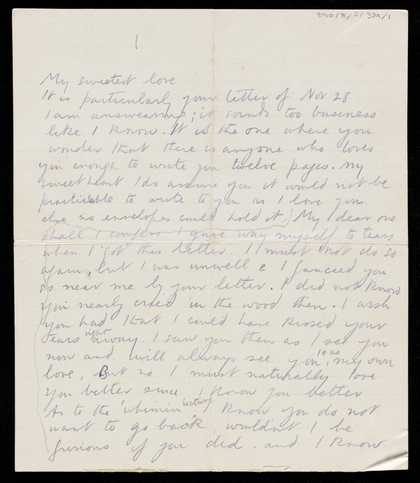 1
My sweetest love
It is particularly your letter of Nov 28
I am answearing; it sounds too business
like I know. It is the one where you
wonder that there is anyone who loves
you enough to write you twelve pages. My
sweetheart I do assure you it would not be
practicable to write to you as I love you
else no envelopes could hold it. My dear one
shall I confess I gave way myself to tears
when I got this letter. I must not do so
again, but I was unwell & I fancied you
so near me by your letter. I did not know
you nearly cried in the wood then. I wish
you had that I could have kissed your
tears right away. I saw you then as I see you
now and will always see you, my own
love, But so I must naturally love
you better since I know you better
As to the 'whimin' I know you do not
want to go back wouldn't I be
furious if you did. and I know